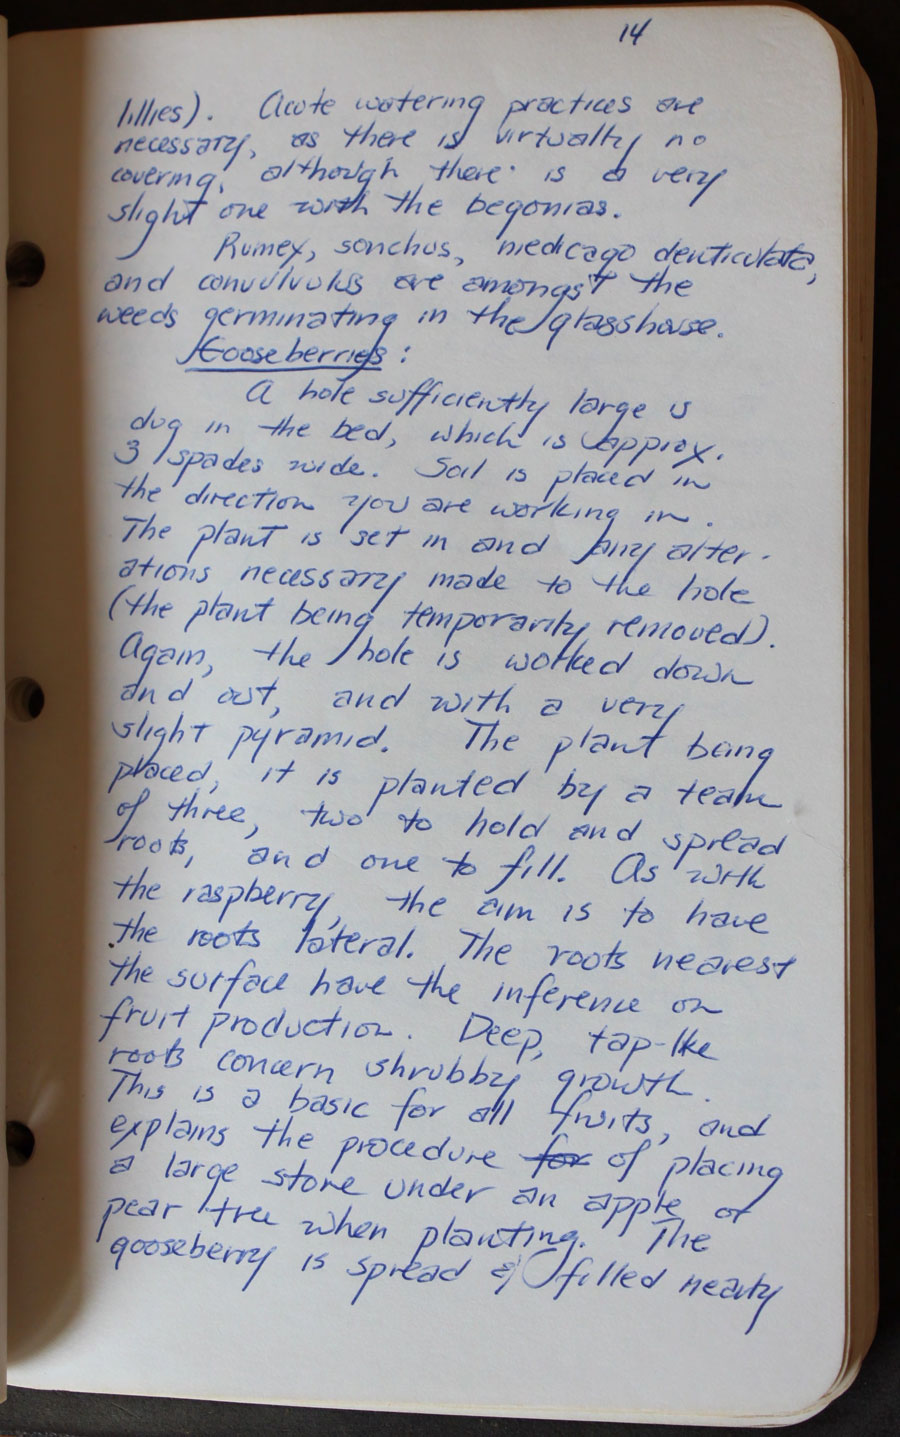 14
lillies). Acute watering practices are
necessary, as there is virtually no
covering, although there is a very
slight one with the begonias.
Rumex, sonchus, medicago denticulata,
and convulvulus are amongst the
weeds germinating in the glasshouse.
Gooseberries:
A hole sufficiently large is
dug in the bed, which is approx.
3 spades wide. Soil is placed in
the direction you are working in.
The plant is set in and any alter-
ations necessary made to the hole
(the plant being temporarily removed).
Again, the hole is worked down
and out, and with a very
slight pyramid. The plant being
placed, it is planted by a team
of three, two to hold and spread
roots, and one to fill. As with
the raspberry, the aim is to have
the roots lateral. The roots nearest
the surface have the inference on
fruit production. Deep, tap-like
roots concern shrubby growth.
This is a basic for all fruits, and
explains the procedure for of placing
a large stone under an apple or
pear tree when planting. The
gooseberry is spread & filled nearly